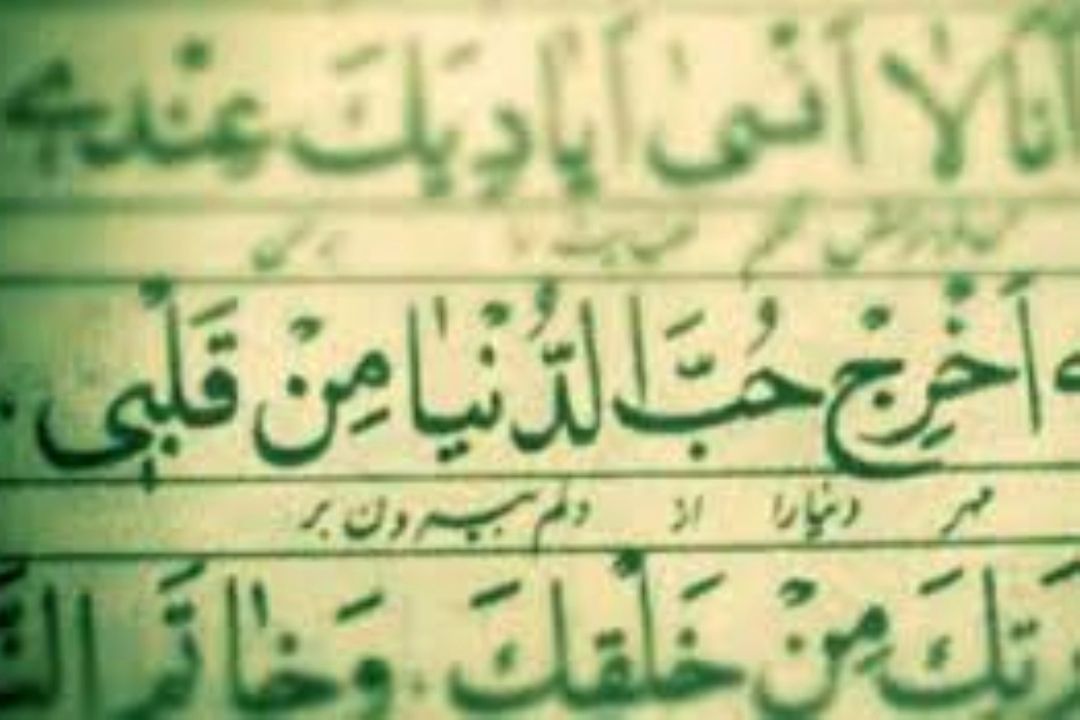 اَنَا لا اَنْسىٰ اَيادِيَكَ عِنْدى
اَخْرِجْ حُبَّ الدُّنْيٰا مِنْ قَلْبى
مهر دنیا را از دلم بیرون بر
مِنْ خَلْقِكَ وَخٰاتَمِ